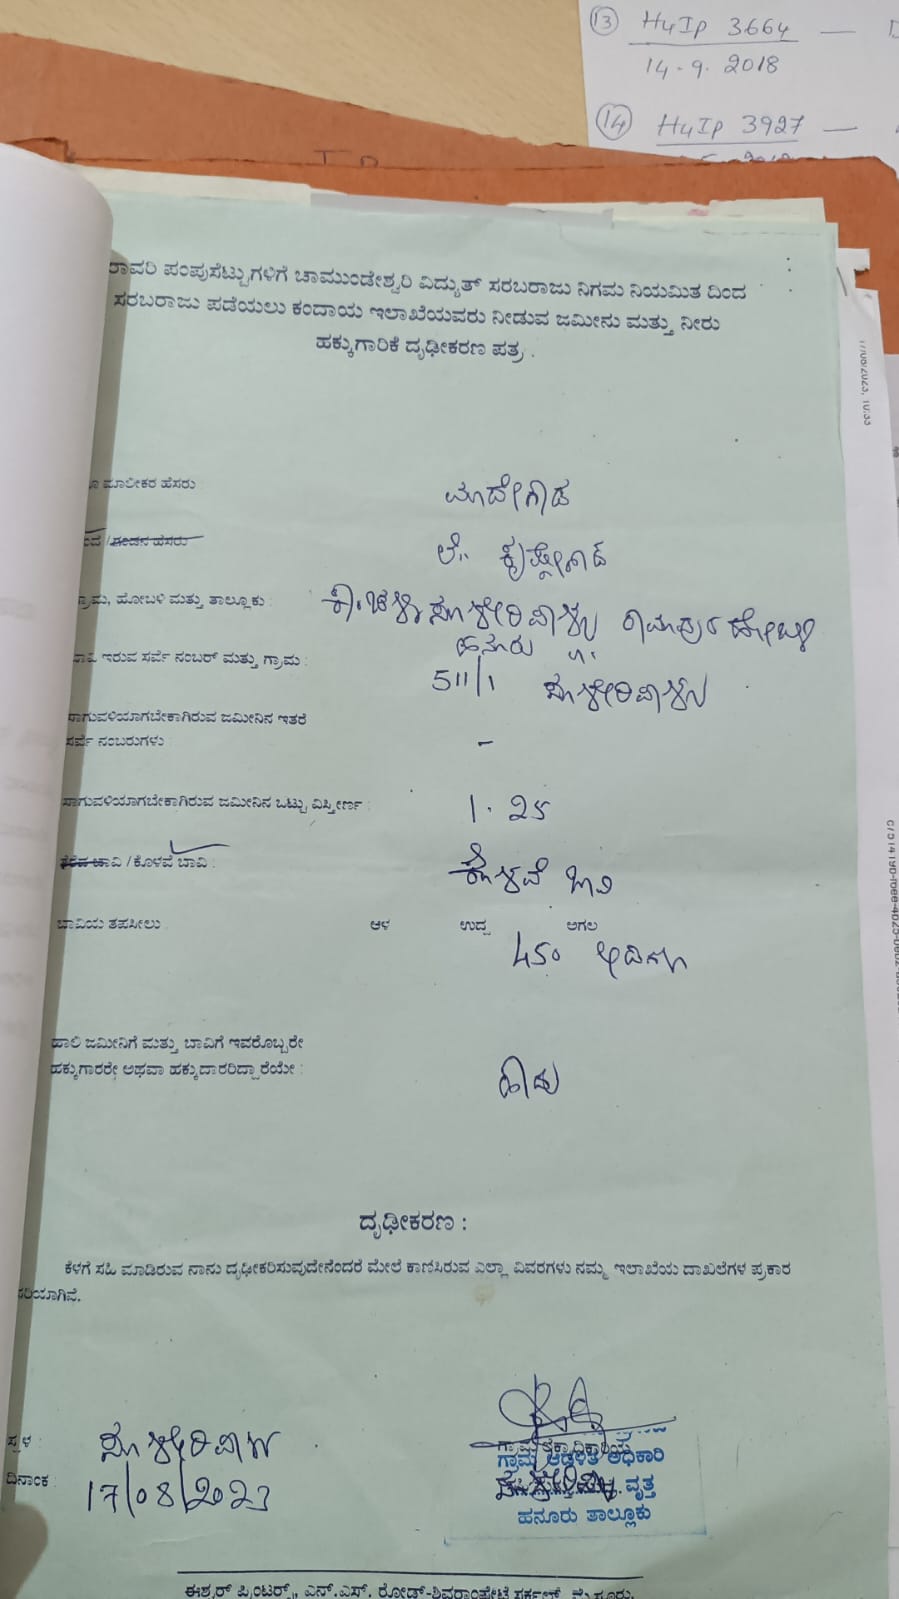 13 H4IP 3664 —
14.9.2018
14 H4IP 3927 —
ರಾವರಿ ಪಂಪುಸೆಟ್ಟುಗಳಿಗೆ ಚಾಮುಂಡೇಶ್ವರಿ ವಿದ್ಯುತ್ ಸರಬರಾಜು ನಿಗಮ ನಿಯಮಿತ ದಿಂದ
ಸರಬರಾಜು ಪಡೆಯಲು ಕಂದಾಯ ಇಲಾಖೆಯವರು ನೀಡುವ ಜಮೀನು ಮತ್ತು ನೀರು
ಹಕ್ಕುಗಾರಿಕೆ ದೃಢೀಕರಣ ಪತ್ರ .
17/08/2023, 10:33
ಮಾಲೀಕರ ಹೆಸರು ಮಾದೇಗೌಡ
/ಗಂಡನ ಹೆಸರು ಲೇ. ಕೃಷ್ಣೇಗೌಡ
ಗ್ರಾಮ, ಹೋಬಳಿ ಮತ್ತು ತಾಲ್ಲೂಕು : ರಾಮಾಪುರ ಹೋಬಳಿ
ಹನೂರು ತಾ.
ಇರುವ ಸರ್ವೆ ನಂಬರ್ ಮತ್ತು ಗ್ರಾಮ : 511/1 ಸೂಳೇರಿಪಾಳ್ಯ
ಸಾಗುವಳಿಯಾಗಬೇಕಾಗಿರುವ ಜಮೀನಿನ ಇತರೆ
ಸರ್ವೆ ನಂಬರುಗಳು : -
ಸಾಗುವಳಿಯಾಗಬೇಕಾಗಿರುವ ಜಮೀನಿನ ಒಟ್ಟು ವಿಸ್ತೀರ್ಣ : 1.25
ತೆರೆದ ಬಾವಿ /ಕೊಳವೆ ಬಾವಿ : ಕೊಳವೆ ಬಾವಿ
ಬಾವಿಯ ತಪಸೀಲು ಆಳ ಉದ್ದ ಅಗಲ
450 ಅಡಿಗಳು
ಹಾಲಿ ಜಮೀನಿಗೆ ಮತ್ತು ಬಾವಿಗೆ ಇವರೊಬ್ಬರೇ
ಹಕ್ಕುಗಾರರೇ ಅಥವಾ ಹಕ್ಕುದಾರರಿದ್ದಾರೆಯೇ : ಹೌದು
ದೃಢೀಕರಣ :
ಕೆಳಗೆ ಸಹಿ ಮಾಡಿರುವ ನಾನು ದೃಢೀಕರಿಸುವುದೇನೆಂದರೆ ಮೇಲೆ ಕಾಣಿಸಿರುವ ಎಲ್ಲಾ ವಿವರಗಳು ನಮ್ಮ ಇಲಾಖೆಯ ದಾಖಲೆಗಳ ಪ್ರಕಾರ
ಸರಿಯಾಗಿವೆ.
ಸ್ಥಳ : ಸೂಳೇರಿಪಾಳ್ಯ
ದಿನಾಂಕ : 17/08/2023
ಗ್ರಾಮ ಆಡಳಿತ ಅಧಿಕಾರಿ
ಸೂಳೇರಿಪಾಳ್ಯ ವೃತ್ತ
ಹನೂರು ತಾಲ್ಲೂಕು
ಈಶ್ವರ್ ಪ್ರಿಂಟರ್ಸ್, ಎನ್.ಎಸ್. ರೋಡ್-ಶಿವರಾಂಪೇಟೆ ಸರ್ಕಲ್, ಮೈಸೂರು.